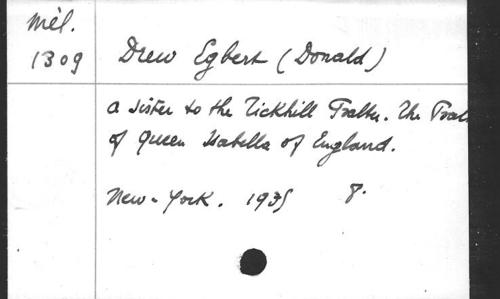 Mél.
1309
Drew Egbert (Donald)
a sister to the Tickhill Psalter. The Psal
of Queen Isabella of England.
New-York. 1935 8.